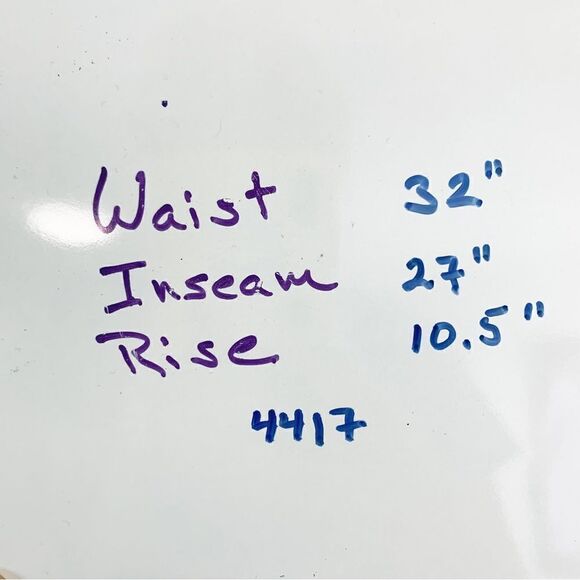 Waist 32"
Inseam 27"
Rise 10.5"
4417